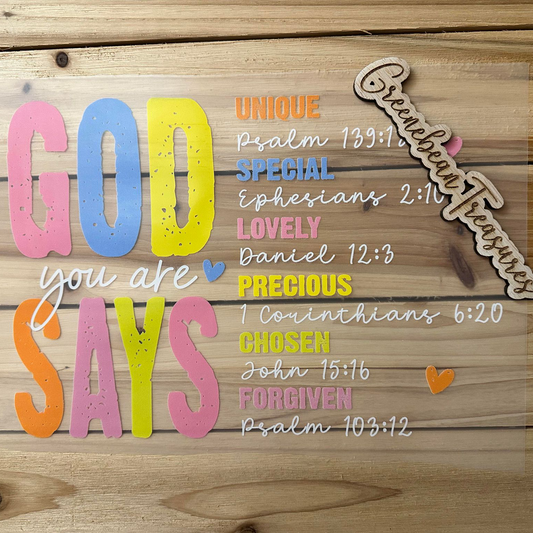 GOD
you are
SAYS
UNIQUE
Psalm 139:1
SPECIAL
Ephesians 2:10
LOVELY
Daniel 12:3
PRECIOUS
1 Corinthians 6:20
CHOSEN
John 15:16
FORGIVEN
Psalm 103:12
Greenebean Treasures